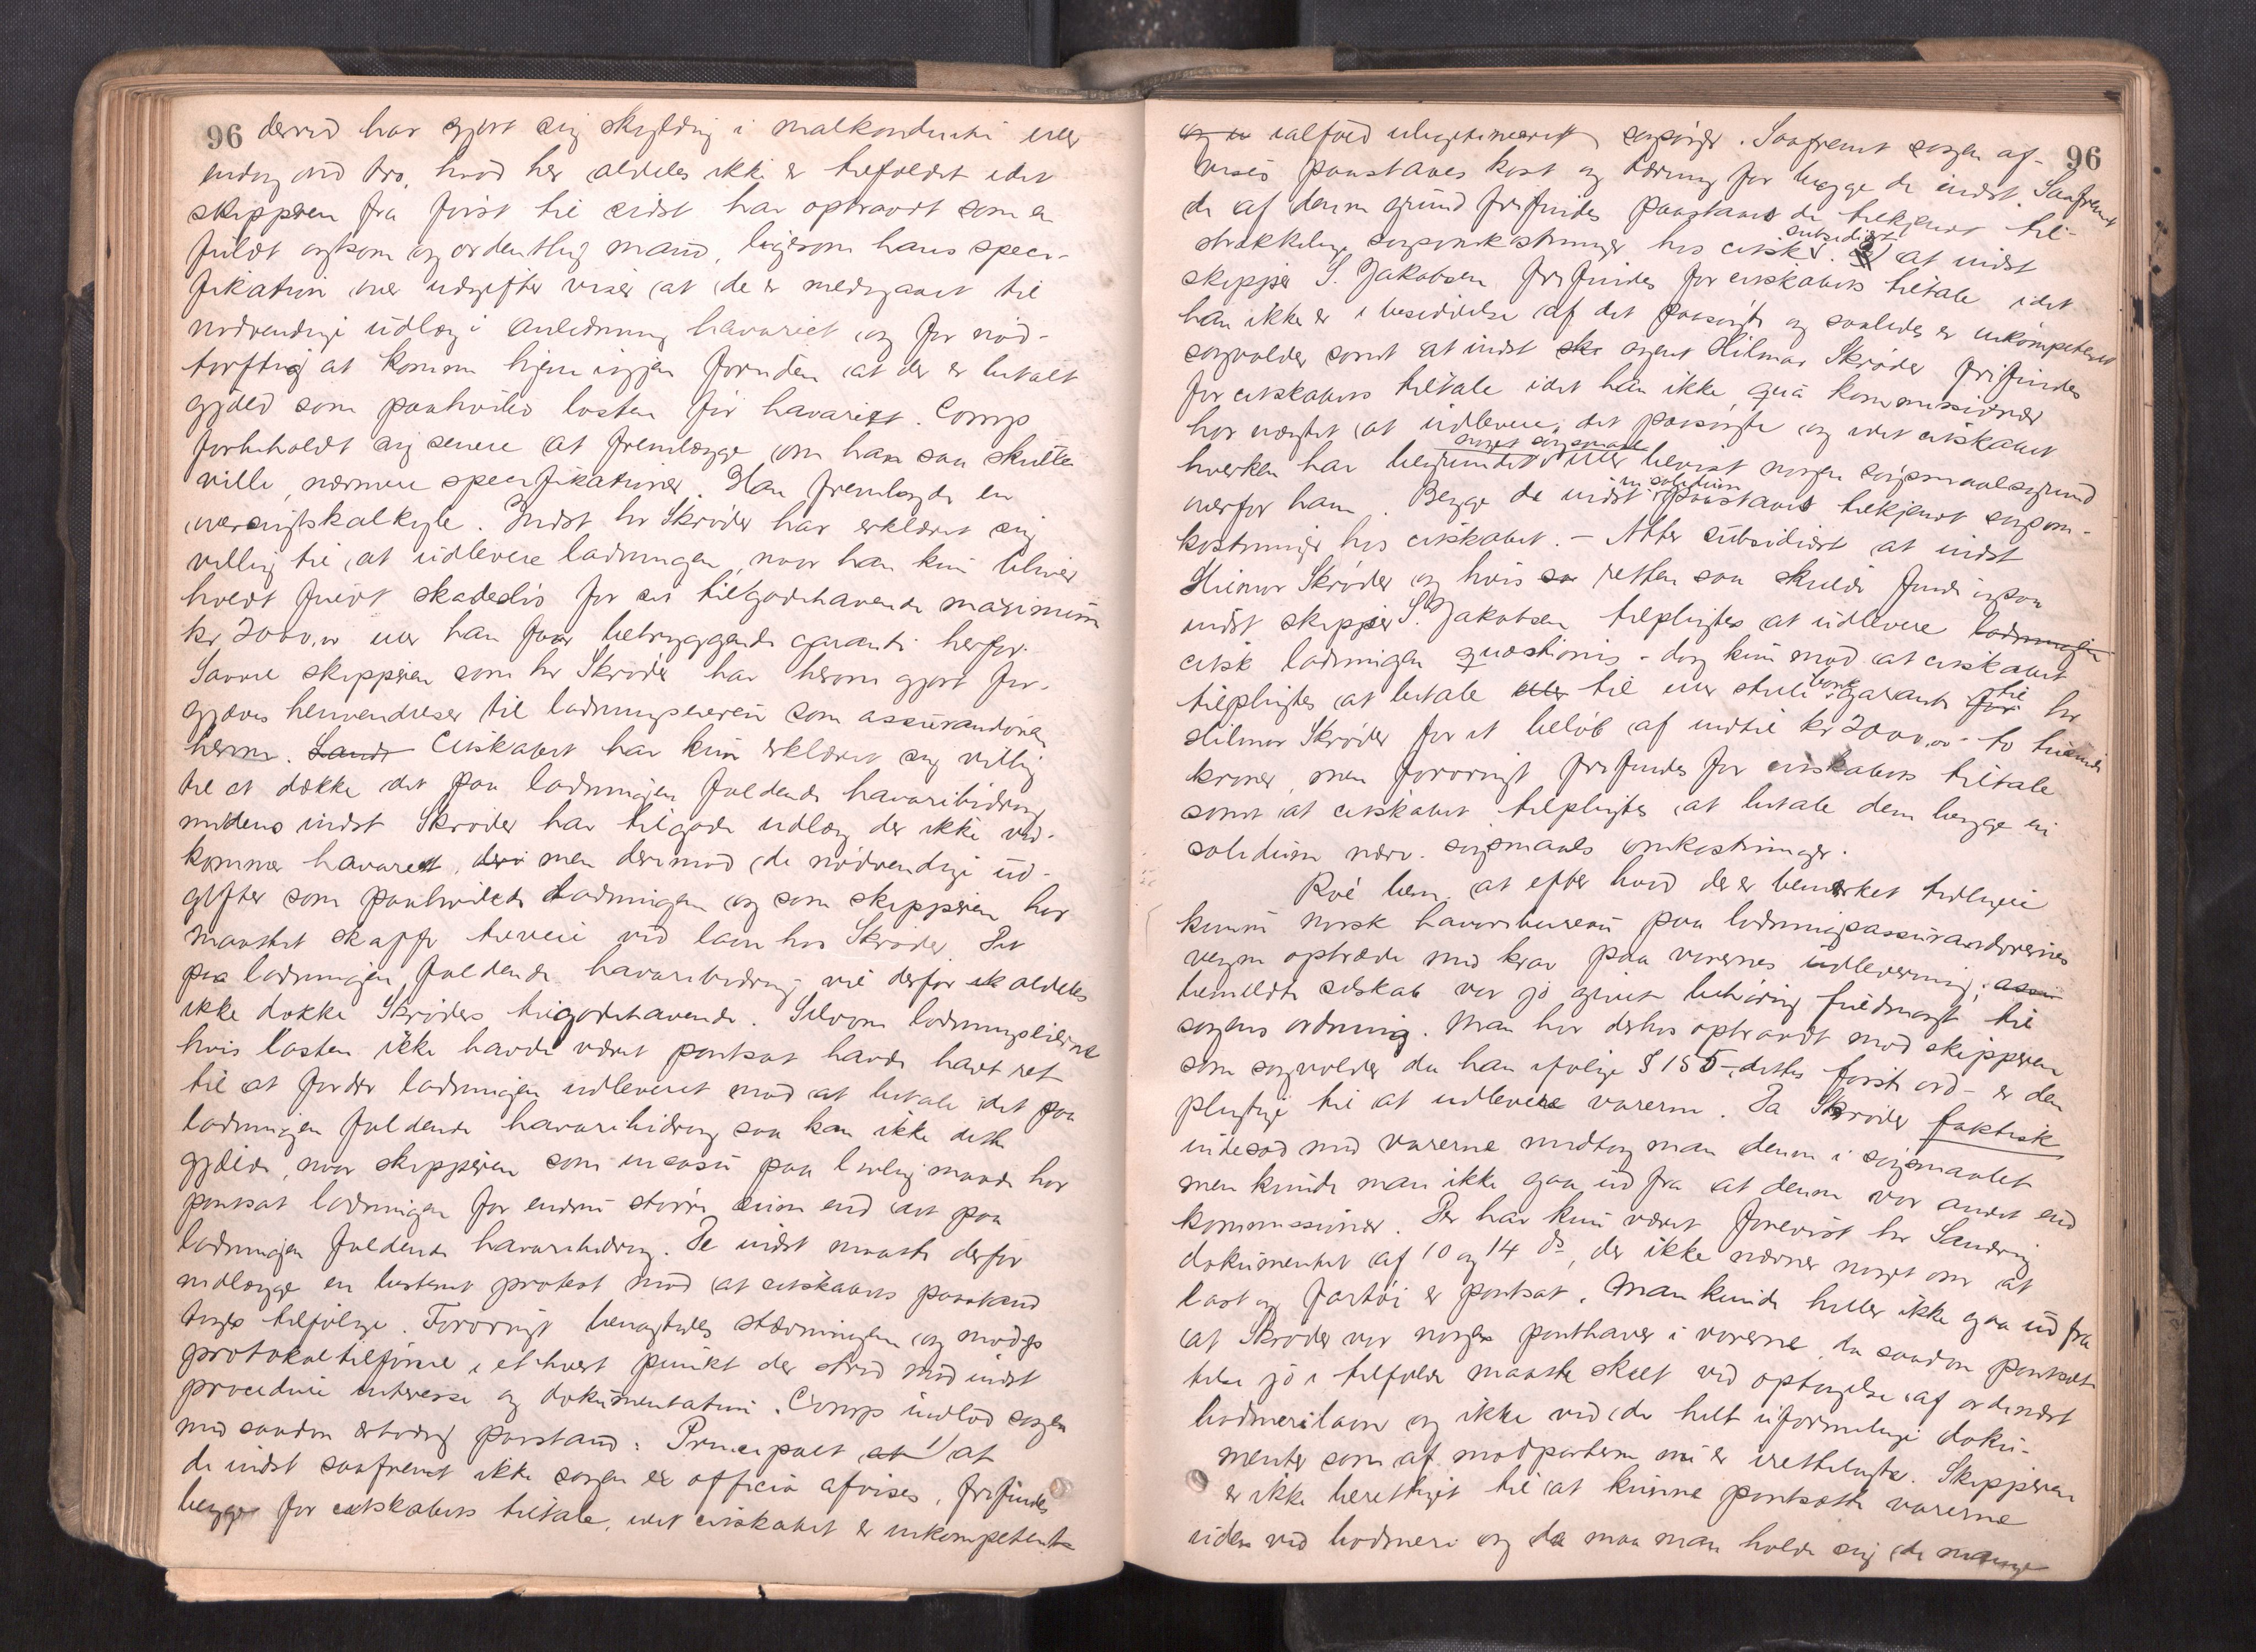 96 derved har gjort sig skyldig i malkonduite eller
endog ond tro, hvad her aldeles ikke er tilfældet idet
skipperen fra først til sidst har optraadt som en
fuldt agtsom og ordentlig mand, ligesom hans speci-
fikation over udgifter viser at de er medgaaet til
nødvendige udlæg i anledning havariet og for nød-
tørftig at komme hjem igjen foruden at der er betalt
gjæld som paahvilte lasten før havariet. Comp
forbeholdt sig senere at fremlægge om han saa skulde
ville, nærmere specifikationer. Han fremlagde en
oversigtskalkyle. Indst hr Skrøder har erklæret sig
villig til at udlevere ladningen, naar han kun bliver
holdt fuldt skadesløs for sit tilgodehavende maximum
kr 2000,00 eller han faar betryggende garanti herfor.
Saavel skipperen som hr Skrøder har herom gjort for-
gjæves henvendelser til ladningseieren som assurandøren
herom. Citskabet har kun erklæret sig villig
til at dække det paa ladningen faldende havaribidrag
medens indst Skrøder har tilgode udlæg der ikke ved-
kommer havariet, men derimod de nødvendige ud-
gifter som paahvilede ladningen og som skipperen har
maattet skaffe tilveie ved laan hos Skrøder. Det
paa ladningen faldende havaribidrag vil derfor aldeles
ikke dække Skrøders tilgodehavende. Selvom ladningseierne
hvis lasten ikke havde været pantsat havde havt ret
til at fordre ladningen udleveret mod at betale det paa
ladningen faldende havaribidrag saa kan ikke dette
gjælde, naar skipperen som in casu paa lovlig maade har
pantsat ladningen for endnu større sum end det paa
ladningen faldende havaribidrag. De indst maatte derfor
nedlægge en bestemt protest mod at citskabets paastand
toges tilfølge. Forøvrigt benægtedes stævningen og modp
protokoltilførsel i ethvert punkt der strid mod indst
procedure interesse og dokumentation. Comp indlod sagen
med saadan ærbødig paastand: Principalt 1) at
de indst saafremt ikke sagen ex officio afvises, frifindes
begge for citskabets tiltale, idet citskabet er inkompetent
96
ialfald ulegitimeret sagsøger. Saafremt sagen af-
vises paastaaes kost og tæring for begge de indst. Saafremt
de af denne grund frifindes paastaaes de tilkjendt til-
strækkelige sagsomkostninger hos citsk. subsidiært at indst
skipper S. Jakobsen frifindes for citskabets tiltale idet
han ikke er i besiddelse af det paasøgte og saaledes er inkompetent
sagvolder samt at indst agent Hilmar Skrøder frifindes
for citskabets tiltale idet han ikke quâ kommissionær
har nægtet at udlevere det paasøgte og idet citskabet
hverken har begrundet noget søgsmaal eller bevist nogen søgsmaalsgrund
overfor ham. Begge de indst in solidum paastaaes tilkjendt sagsom-
kostninger hos citskabet. — Atter subsidiært at indst
Hilmar Skrøder og hvis retten saa skulde finde ogsaa
indst skipper S. Jakobsen tilpligtes at udlevere ladningen
citsk ladningen quæstionis - dog kun mod at citskabet
tilpligtes at betale til eller stille bankgaranti til hr
Hilmar Skrøder for et beløb af indtil kr 2000,00 - to tusinde
kroner, men forøvrigt frifindes for citskabets tiltale
samt at citskabet tilpligtes at betale dem begge in
solidum nærv. søgsmaals omkostninger.
Roé bem. at efter hvad der er bemærket tidligere
kunne norsk havaribureau paa ladningsassurandørernes
vegne optræde med krav paa varernes udlevering;
bemeldte selskab var jo givet behørig fuldmagt til
sagens ordning. Man har derhos optraadt mod skipperen
som sagvolder da han ifølge § 155 - dettes første ord - er den
pligtige til at udlevere varerne. Da Skrøder faktisk
indesad med varerne medtog man denne i søgsmaalet
men kunde man ikke gaa ud fra at denne var andet end
kommissionær. Der har kun været forevist hr Sandring
dokumentet af 10 og 14 ds, der ikke nævner noget om at
last og fartøi er pantsat. Man kunde heller ikke gaa ud fra
at Skrøder var nogen panthaver i varerne, da saadan pantsæt-
telse jo i tilfælde maatte skeet ved optagelse af ordinært
bodmerilaan og ikke ved de helt uformelige doku-
menter som af modparterne nu er irettelagte. Skipperen
er ikke berettiget til at kunne pantsætte varerne
uden ved bodmeri og da maa man holde sig de mange